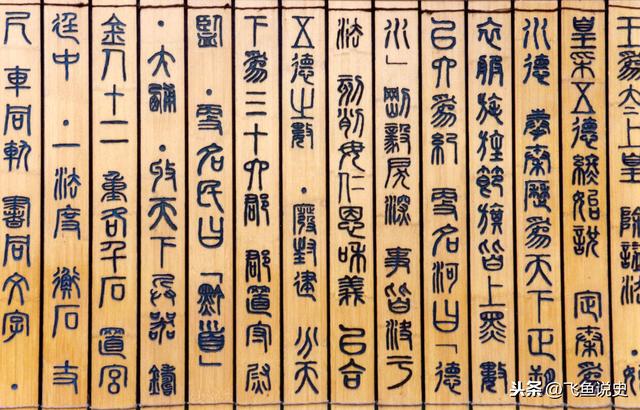 王爲太上皇 除謚法 ·始
皇采五德終始說 定秦爲
水德 奉秦歷爲天下正朔
衣服旄旌節旗皆上黑 數
以六爲紀 更名河曰「德
水」 剛毅戾深 事皆決于
法 刻削毋仁恩和義 以合
五德之數 ·廢封建 分天
下爲三十六郡 郡置守尉
監 ·更名民曰「黔首」
·大酺 ·收天下兵器 鑄
金人十二 重各千石 置宮
廷中 ·一法度 衡石 丈
尺 車同軌 書同文字 ·
头条@飞鱼说史